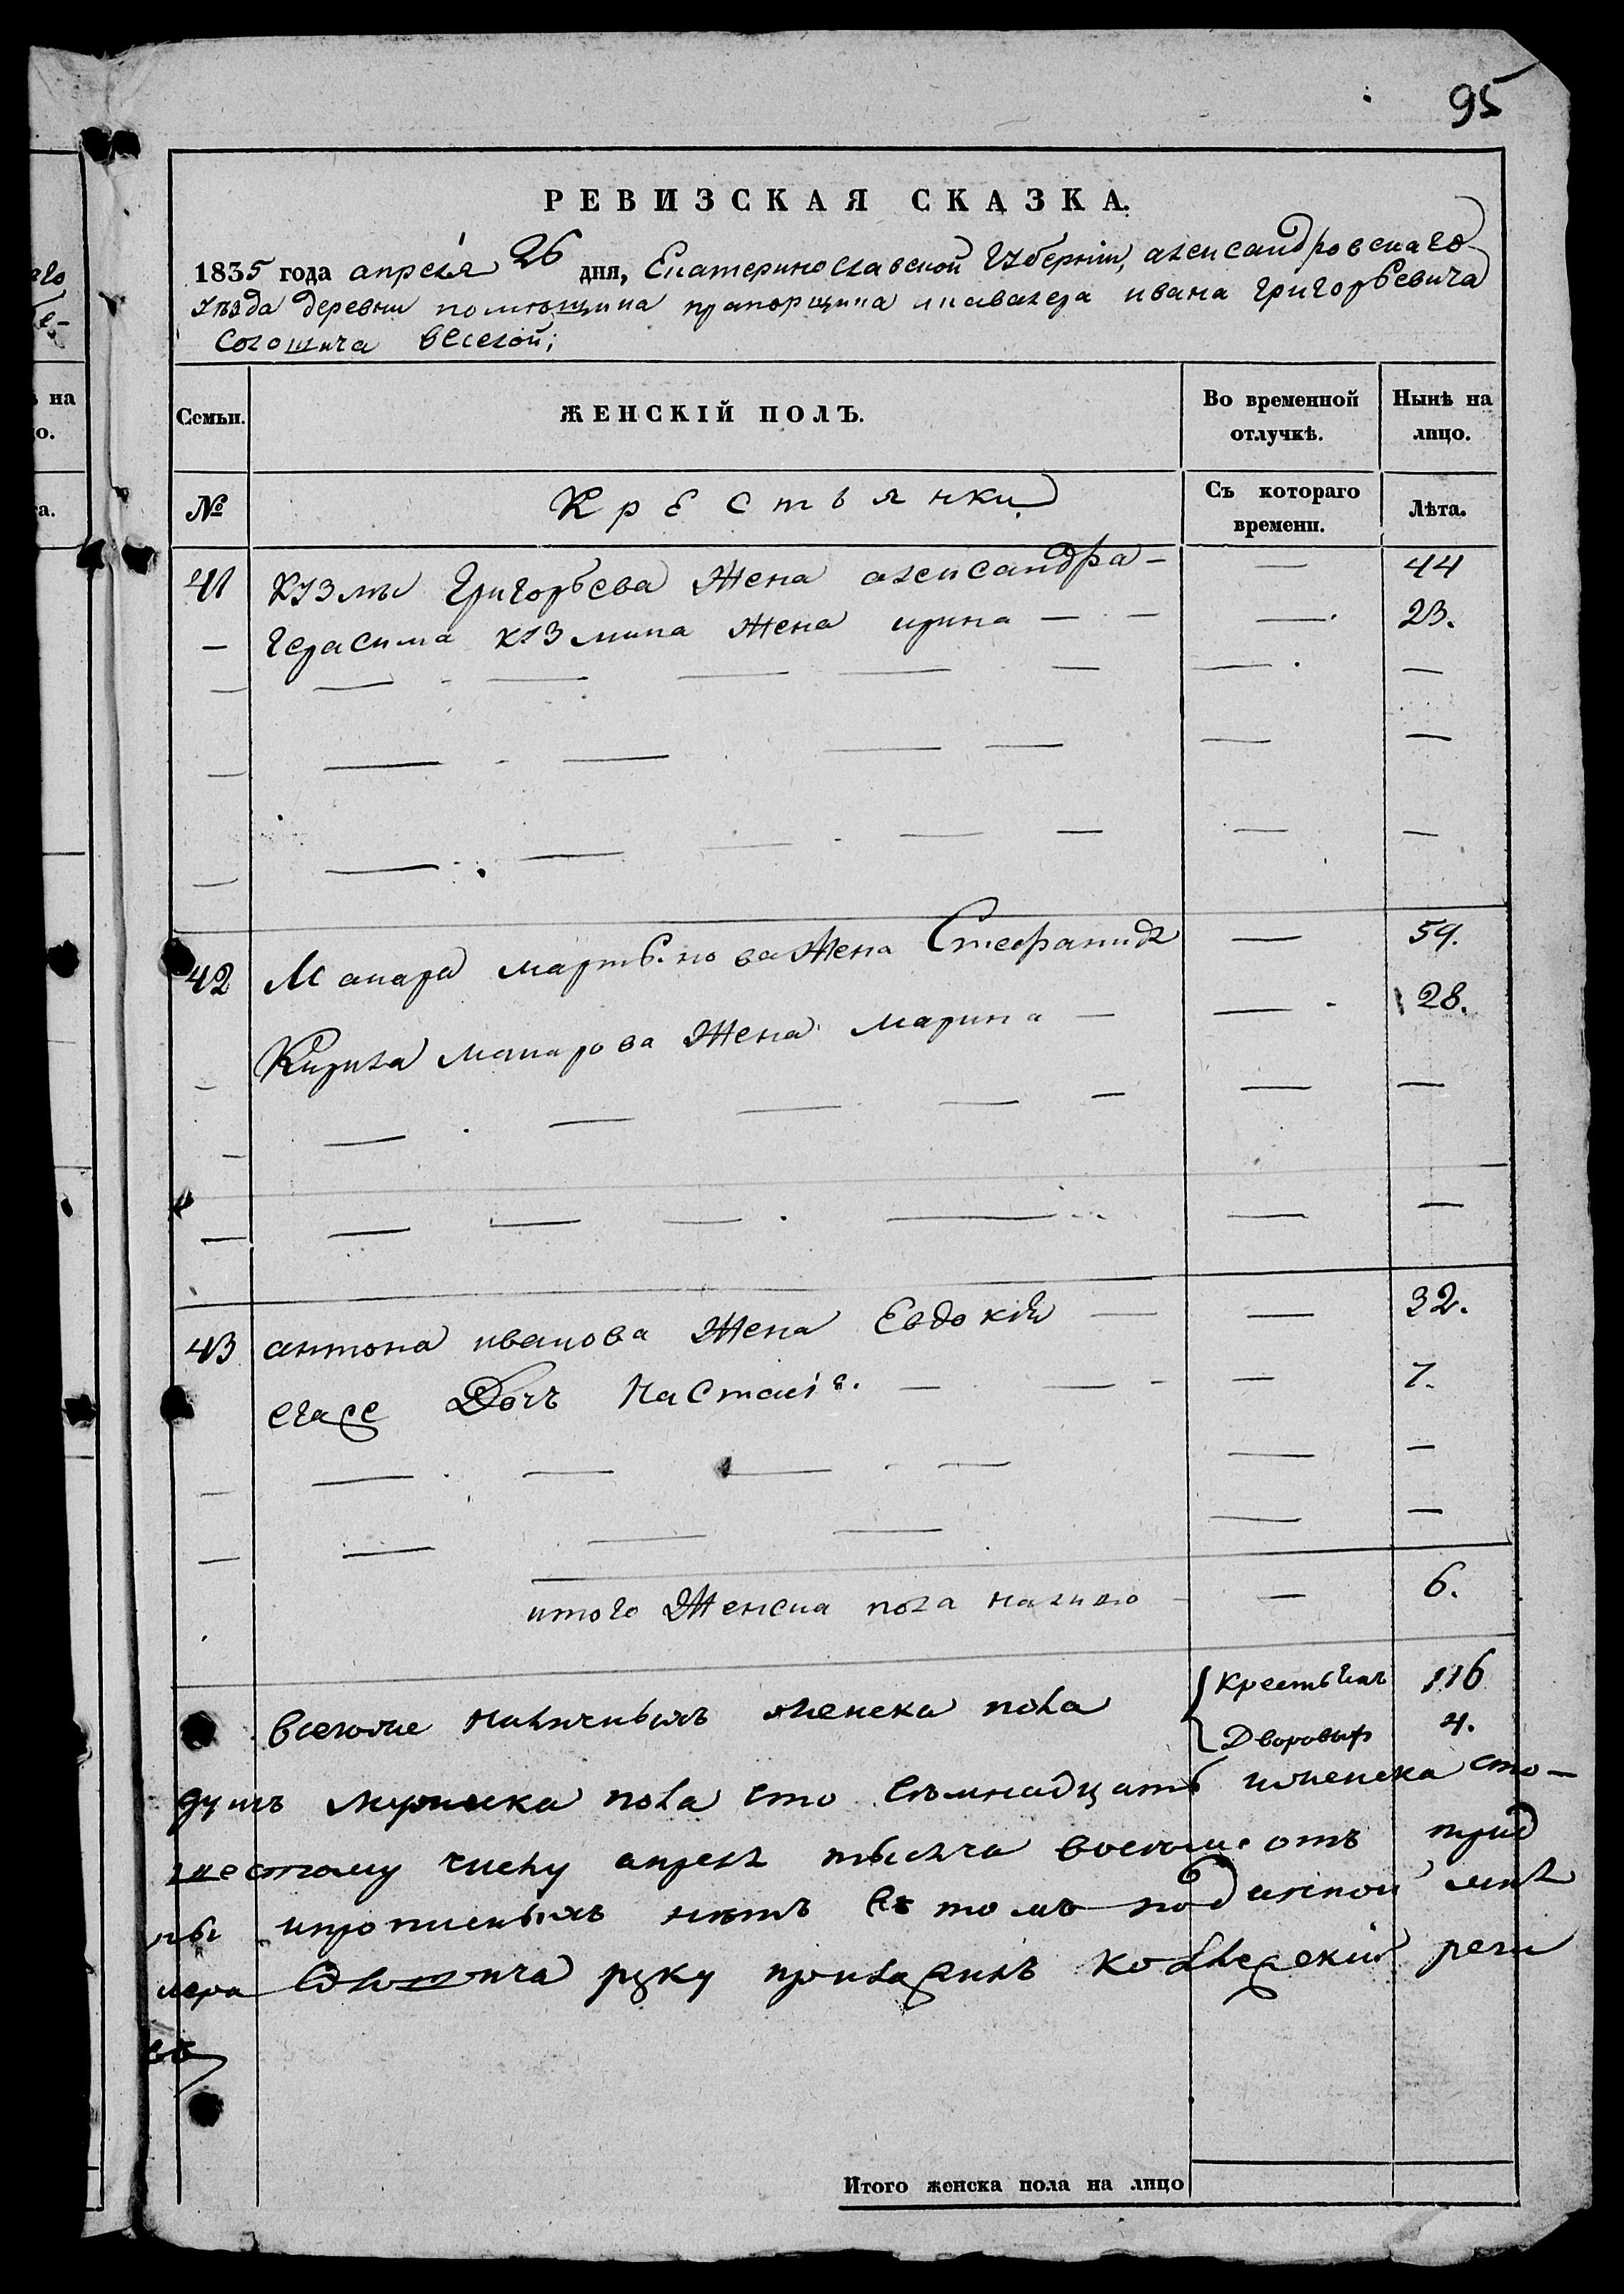 95
РЕВИЗСКАЯ СКАЗКА.
1835 года апреля 26 дня, Екатеринославской Губернiи, александровскаго
уѣзда деревни помѣщика прапорщика икавалера ивана григорьевича
Солошича веселой;
Семьи. ЖЕНСКІЙ ПОЛЪ. Во временной отлучкѣ. Нынѣ на лицо.
№ Крестьянки Съ котораго времени. Лѣта.
41 кузмы Григорьева Жена александра — — 44
— герасима кузмина Жена ирина — — — 23.
42 Макара марты.нова Жена Стефанида — 59.
Кирила макарова Жена марина — — 28.
43 антона иванова Жена Евдокiя — — 32.
егоже Дочь Настасiя. — — — 7.
итого Женска пола налицо — 6.
всегоже наличныхъ женска пола { крестьянъ 116
Дворовыхъ 4.
душъ мужеска пола сто семнадцать иженска сто—
шестому числу апреля тысяча восемьсотъ трид
ны ипрописныхъ нѣтъ въ томъ
лера Солошича руку приложилъ реги
въ
Итого женска пола на лицо
его
ѣ на
о.
та.